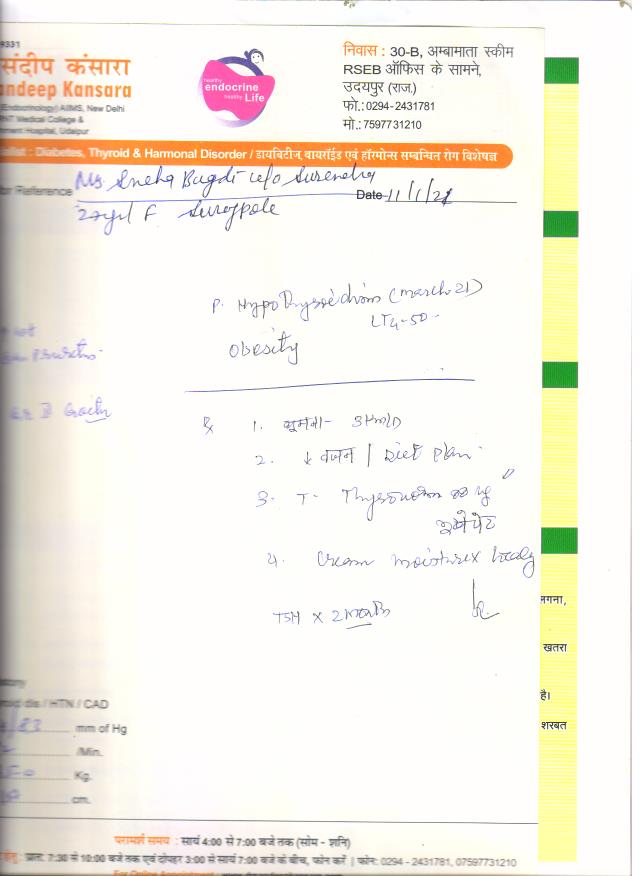 9331
संदीप कंसारा
andeep Kansara
(Endocrinology) AIIMS, New Delhi
NT Medical College &
ment Hospital, Udaipur
healthy
endocrine
healthy Life
निवास : 30-B, अम्बामाता स्कीम
RSEB ऑफिस के सामने,
उदयपुर (राज.)
फो.: 0294-2431781
मो.: 7597731210
list : Diabetes, Thyroid & Harmonal Disorder / डायबिटीज, थायरॉईड एवं हॉरमोन्स सम्बन्धित रोग विशेषज्ञ
or Reference Ms. Sneha Bugdi w/o Surendra
Date 11/1/21
F Surajpole
P. Hypothyroidism (march 21)
LT4-50-
Obesity
not
Goitre
Rx 1. घूमना - 3km/D
2. ↓ वजन / Diet plan
3. T. Thyronorm
4. Cream moisturex locally
TSH x 2 month
लगना,
खतरा
है।
शरबत
dis / HTN / CAD
/83 mm of Hg
/Min.
Kg.
cm.
परामर्श समय : सायं 4:00 से 7:00 बजे तक (सोम - शनि)
हेतु : प्रात: 7:30 से 10:00 बजे तक एवं दोपहर 3:00 से सायं 7:00 बजे के बीच, फोन करें | फोन: 0294 - 2431781, 07597731210
For Online Appointment :